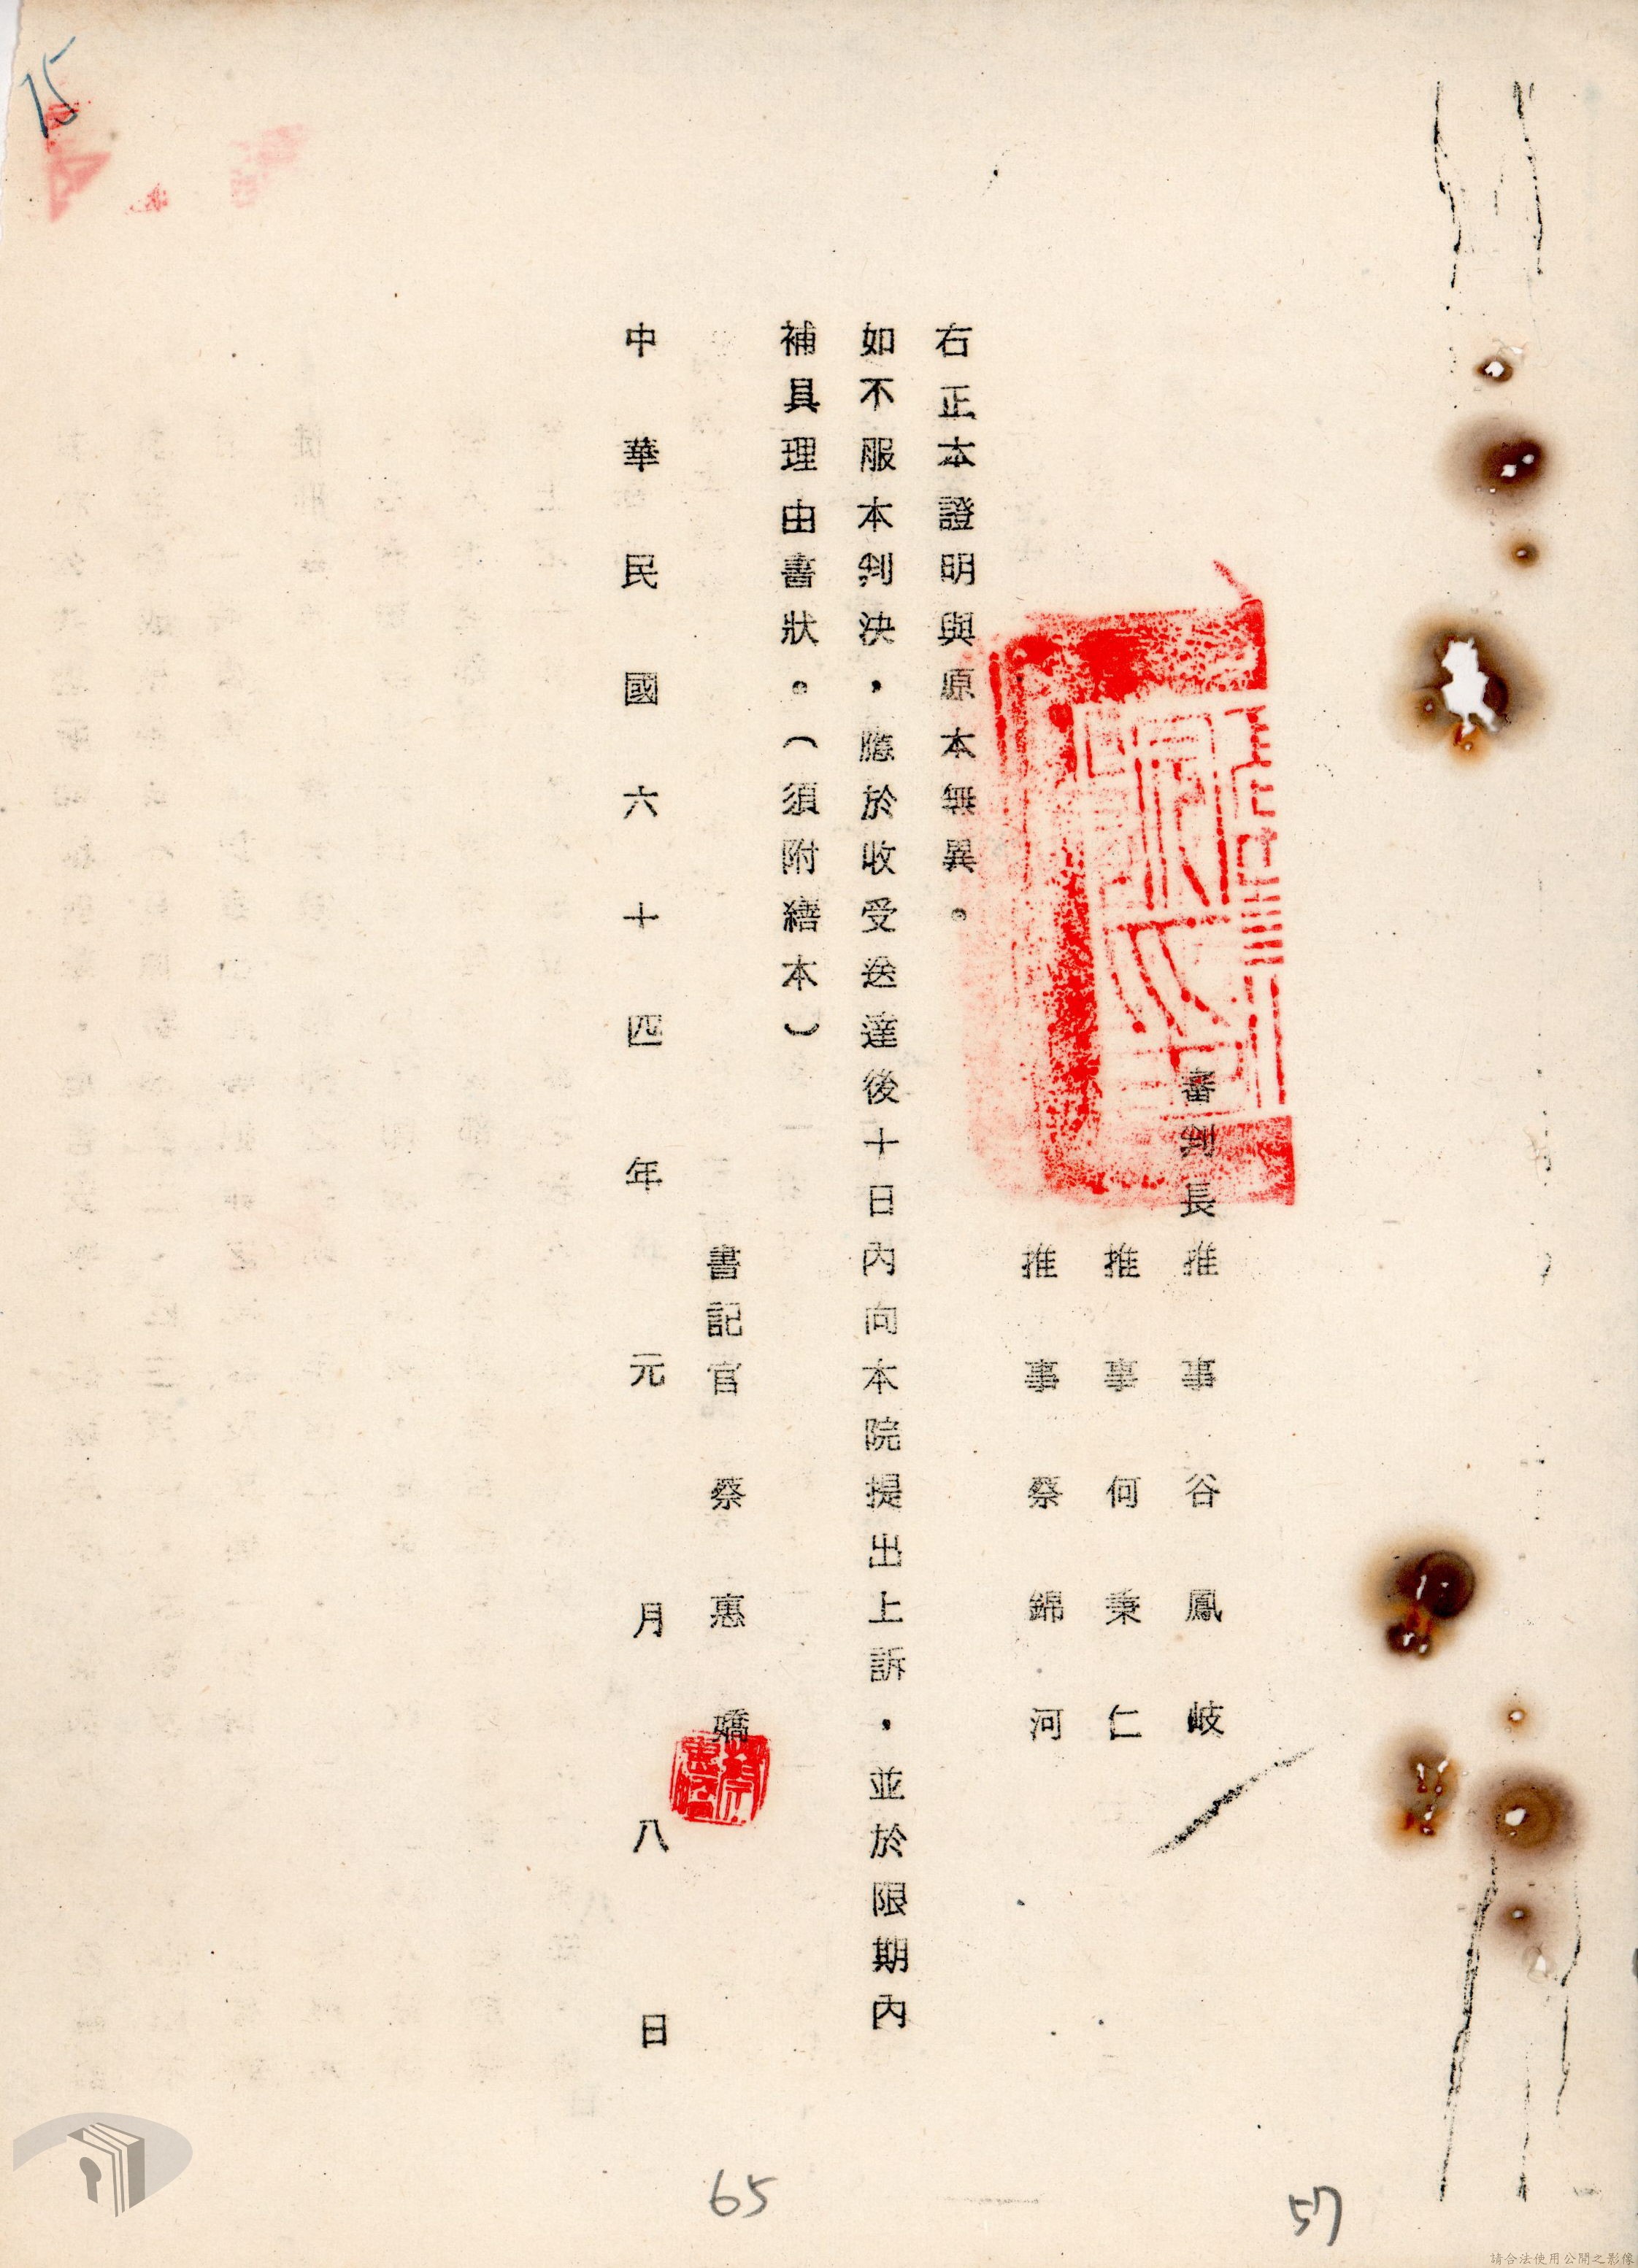 審判長推事谷鳳岐
推事何秉仁
推事蔡錦河
右正本證明與原本無異。
如不服本判決，應於收受送達後十日內向本院提出上訴，並於限期內
補具理由書狀。（須附繕本）
書記官蔡惠嬌
中華民國六十四年元月八日
15
65
57
請合法使用公開之影像